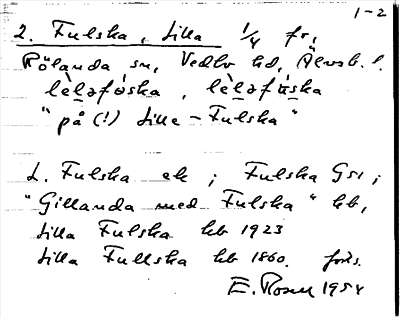 1-2
2. Fulska, Lilla 1/4 fr,
Rölanda sn, Vedbo hd, Älvsb. l.
lèlafúska, lèlafúska
"på (!) Lilla-Fulska"
L. Fulska ek; Fulska Gs1;
"Gillanda med Fulska" hb,
Lilla Fulska hb 1923
Lilla Fullska hb 1860.
E. Rosell 1954